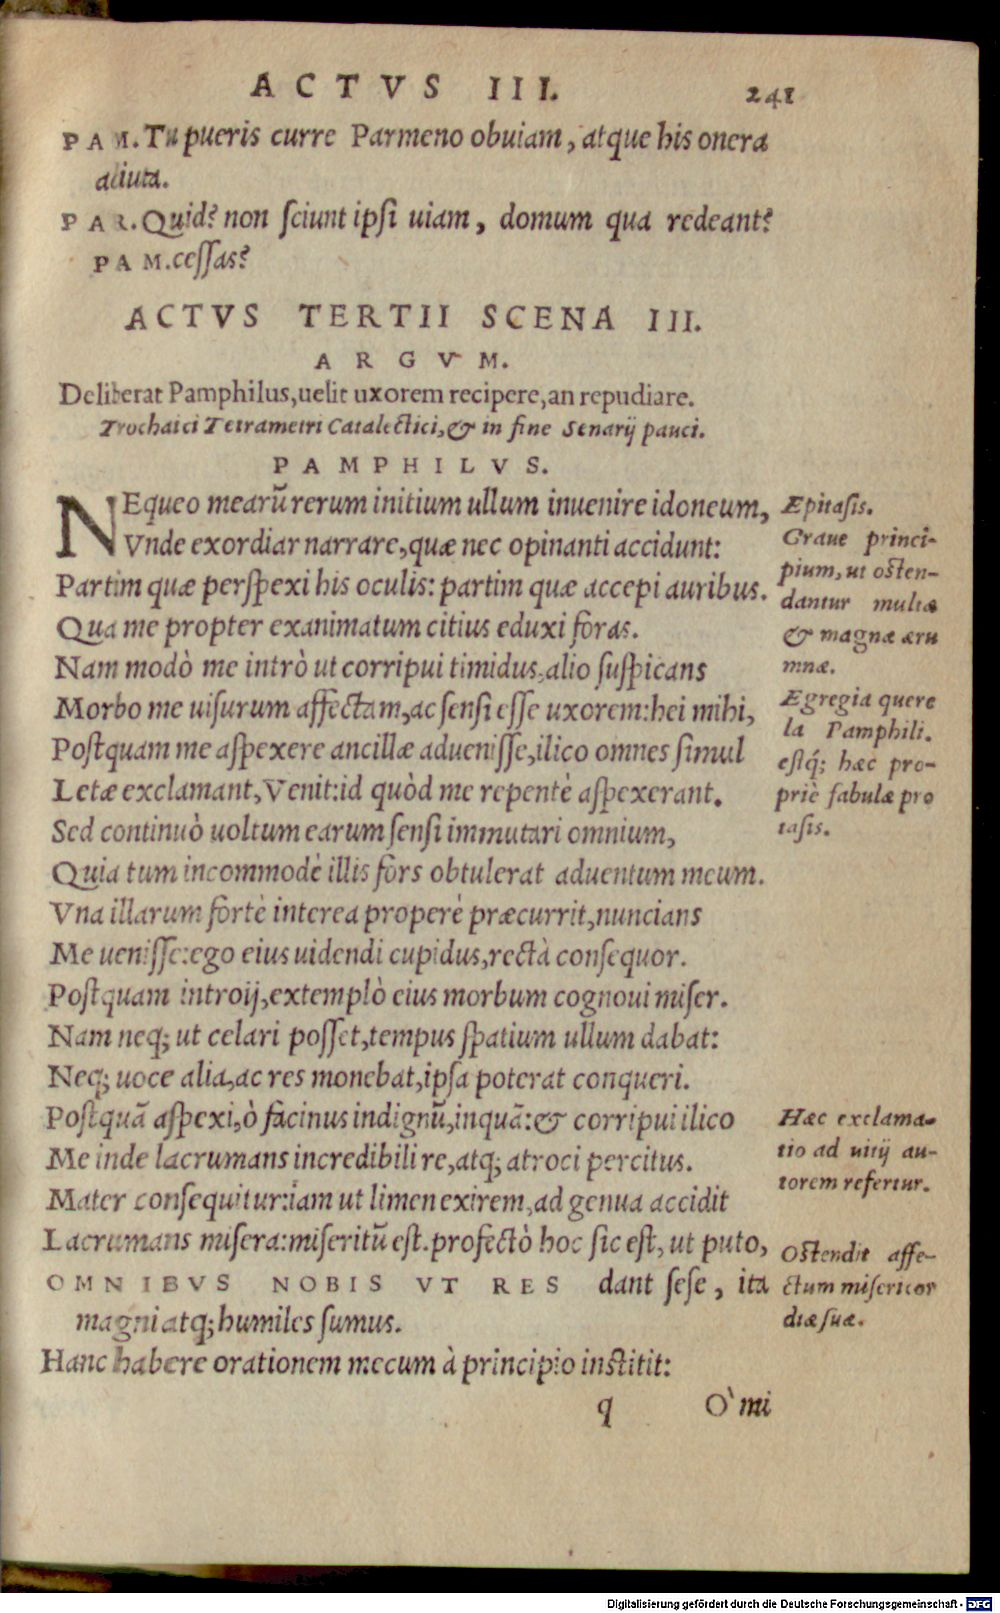 ACTVS III. 241
PAM. Tu pueris curre Parmeno obuiam, atque his onera
adiuta.
PAR. Quid? non sciunt ipsi uiam, domum qua redeant?
PAM. cessas?
ACTVS TERTII SCENA III.
ARGVM.
Deliberat Pamphilus, uelit uxorem recipere, an repudiare.
Trochaici Tetrametri Catalectici, & in fine Senarij pauci.
PAMPHILVS.
NEqueo mearũ rerum initium ullum inuenire idoneum,
Vnde exordiar narrare, quæ nec opinanti accidunt:
Partim quæ perspexi his oculis: partim quæ accepi auribus.
Qua me propter exanimatum citius eduxi foras.
Nam modò me intrò ut corripui timidus, alio suspicans
Morbo me uisurum affectam, ac sensi esse uxorem: hei mihi,
Postquam me aspexere ancillæ aduenisse, ilico omnes simul
Letæ exclamant, Venit: id quòd me repentè aspexerant.
Sed continuò uoltum earum sensi immutari omnium,
Quia tum incommodè illis fors obtulerat aduentum meum.
Vna illarum fortè interea properè præcurrit, nuncians
Me uenisse: ego eius uidendi cupidus, rectà consequor.
Postquam introij, extemplò eius morbum cognoui miser.
Nam neq; ut celari posset, tempus spatium ullum dabat:
Neq; uoce alia, ac res monebat, ipsa poterat conqueri.
Postquã aspexi, ò facinus indignũ, inquã: & corripui ilico
Me inde lacrumans incredibili re, atq; atroci percitus.
Mater consequitur: iam ut limen exirem, ad genua accidit
Lacrumans misera: miseritũ est. profectò hoc sic est, ut puto,
OMNIBVS NOBIS VT RES dant sese, ita
magni atq; humiles sumus.
Hanc habere orationem mecum à principio institit:
q Ò mi
Epitasis.
Graue princi-
pium, ut osten-
dantur multæ
& magnæ æru
mnæ.
Egregia quere
la Pamphili.
estq́; hæc pro-
priè fabulæ pro
tasis.
Hæc exclama-
tio ad uitij au-
torem refertur.
Ostendit affe-
ctum misericor
diæ suæ.
Digitalisierung gefördert durch die Deutsche Forschungsgemeinschaft - DFG